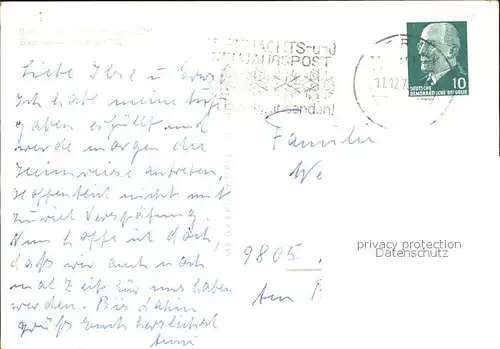 Liebe Ilse u Erwin
Ich habe meine Auf-
gaben erfüllt und
werde morgen die
Heimreise antreten,
hoffentlich nicht mit
zuviel Verspätung.
Nun hoffe ich doch,
daß wir auch noch
mal Zeit für uns haben
werden. Bis dahin
grüßt Euch herzlichst
NACHTS-und
JAHRSPOST
senden!
11.12.7
10
DEUTSCHE
DEMOKRATISCHE REPUBLIK
Familie
We
9805
Am
privacy protection
Datenschutz